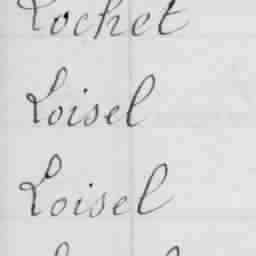 Lochet
Loisel
Loisel